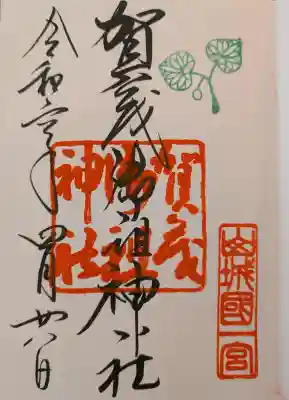 山城國一宮
賀茂御祖神社
賀茂御祖神社
令和 年四月廿八日